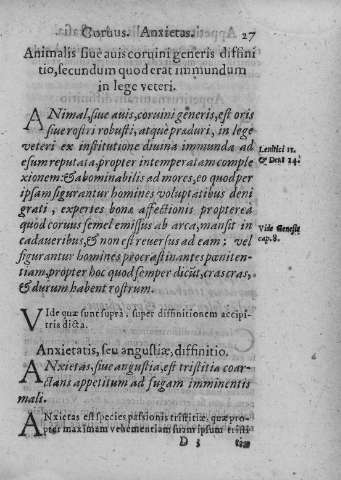 Coruus. Anxietas. 27
Animalis siuè auis coruini generis diffini
tio, secundum quod erat immundum
in lege veteri.
ANimal, siue auis, coruini generis, est oris
siue rostri robusti, atquè præduri, in lege
veteri ex institutione diuina immunda ad
esum reputata, propter intemperatam comple
xionem: & abominabilis ad mores, eo quod per
ipsam figurantur homines voluptatibus deni
grati, expertes bonæ affectionis proptereà
quod coruus semel emissus ab arca, mansit in
cadaueribus, & non est reuersus ad eam; vel
figurantur homines procrastinantes pœniten-
tiam, propter hoc quod semper dicũt, cras cras,
& durum habent rostrum.
Leuitici 11.
& Deut 14.
Vide Genesis
cap. 8.
VIde quæ sunt suprà, super diffinitionem accipi-
tris dicta.
Anxietatis, seu angustiæ, diffinitio.
ANxietas, siue angustia, est tristitia coar-
ctans appetitum ad fugam imminentis
mali.
ANxietas est species passionis tristitiæ, quæ pro-
pter maximam vehementiam suam ipsum tristi
D 3